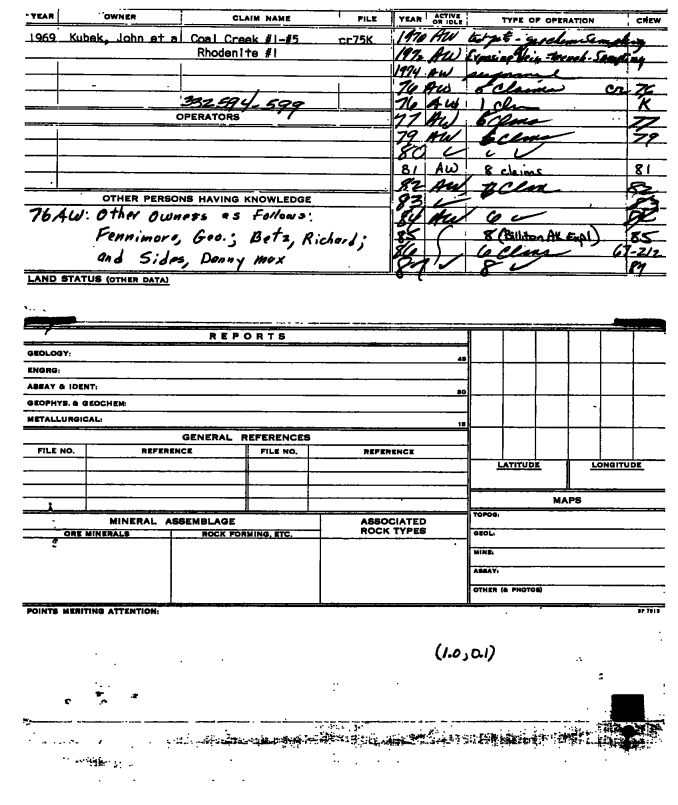 YEAR OWNER CLAIM NAME FILE YEAR ACTIVE OR IDLE TYPE OF OPERATION CREW
1969 Kubek, John et al Coal Creek #1-#5 cr75K 1970 AW geochem Sampling
Rhodenite #1 1972 AW Exposing Vein - trench - Sampling
1974 AW
76 AW Claims cr 76
332594-599 76 AW 1 clm K
OPERATORS 77 AW 6 Clms 77
79 AW 6 Clms 79
80 ✓ ✓
81 AW 8 claims 81
82 AW Clms 82
OTHER PERSONS HAVING KNOWLEDGE 83 ✓ 83
76AW: Other Owners as Follows: 84 AW 6 ✓
Fennimore, Geo.; Betz, Richard; 85 8 (Billiton AK Expl) 85
and Sides, Donny max 86 6 Clms 67-212
87 ✓ 8 ✓ 87
LAND STATUS (OTHER DATA)
REPORTS
GEOLOGY: 45
ENGRG:
ASSAY & IDENT: 30
GEOPHYS. & GEOCHEM:
METALLURGICAL: 15
GENERAL REFERENCES
FILE NO. REFERENCE FILE NO. REFERENCE
LATITUDE LONGITUDE
MAPS
MINERAL ASSEMBLAGE ASSOCIATED ROCK TYPES TOPOG:
ORE MINERALS ROCK FORMING, ETC. GEOL:
MINE:
ASSAY:
OTHER (& PHOTOS)
POINTS MERITING ATTENTION:
(1.0,0.1)